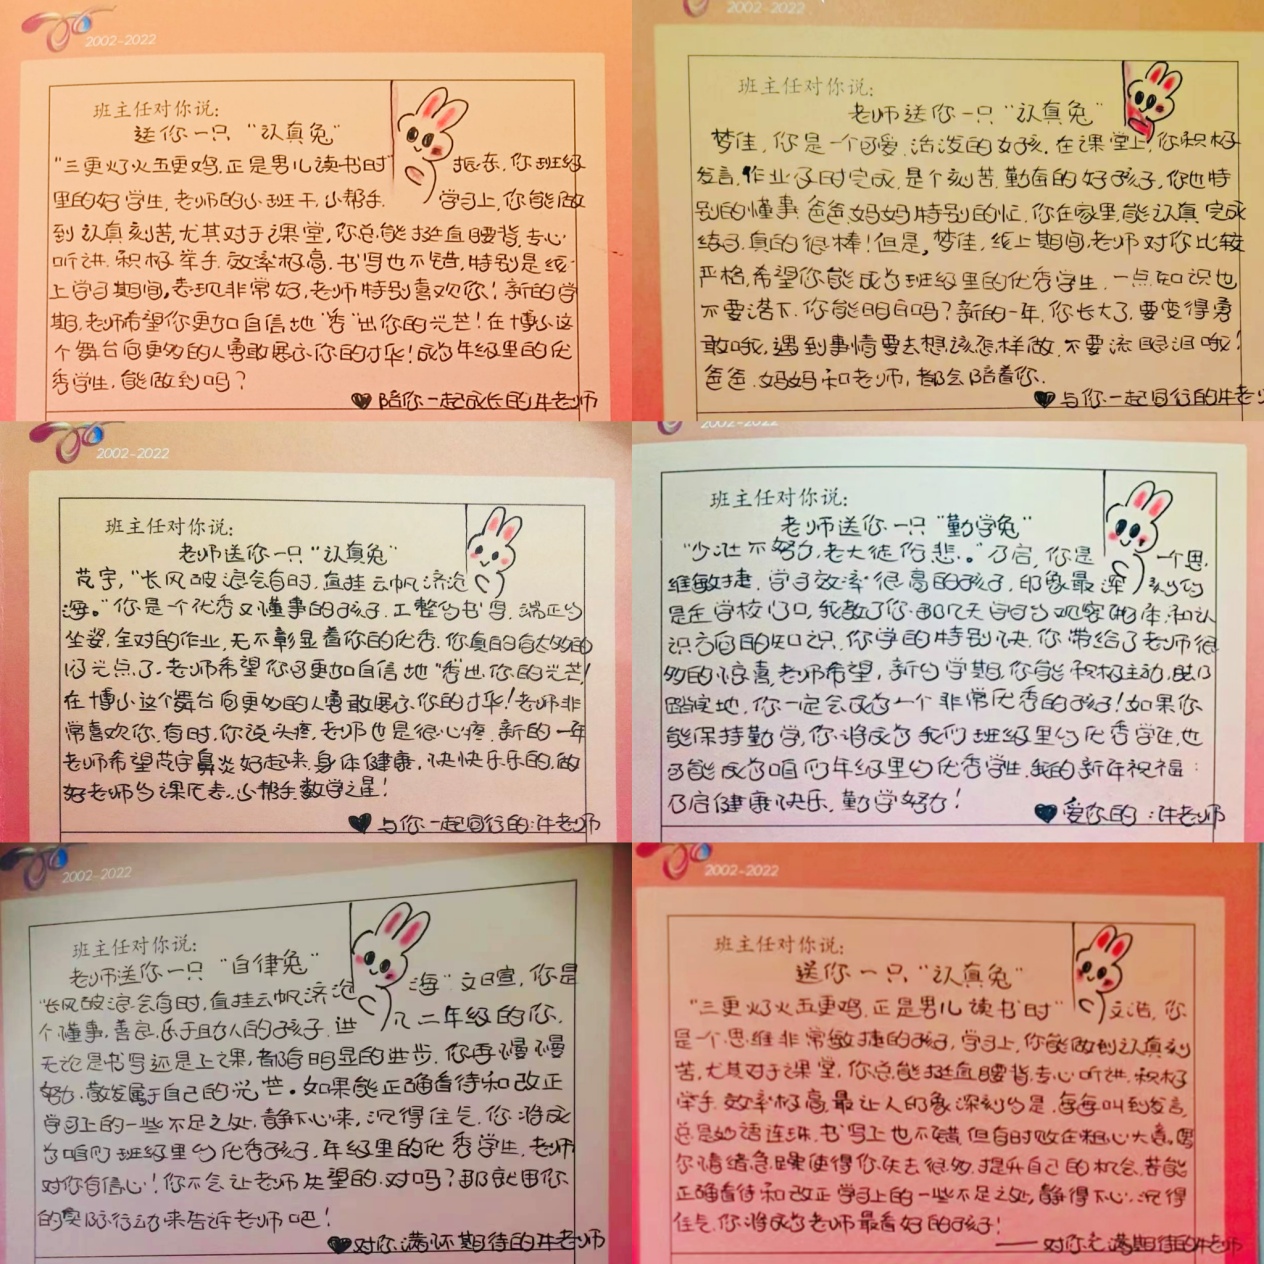 2002-2022
班主任对你说:
送你一只“认真兔”
“三更灯火五更鸡,正是男儿读书时” 振东,你班级
里的好学生,老师的小班干,小帮手. 学习上,你能做
到认真刻苦,尤其对于课堂,你总能挺直腰背,专心
听讲,积极举手,效率极高,书写也不错,特别是线
上学习期间,表现非常好,老师特别喜欢你!新的学
期,老师希望你更加自信地“秀”出你的光芒!在博小这
个舞台向更多的人勇敢展示你的才华!成为年级里的优
秀学生,能做到吗?
陪你一起成长的:许老师
班主任对你说:
老师送你一只“认真兔”
梦佳,你是一个可爱,活泼的女孩,在课堂上,你积极
发言,作业及时完成,是个刻苦,勤奋的好孩子,你也特
别的懂事,爸爸妈妈特别的忙,你在家里,能认真完成
练习,真的很棒!但是,梦佳,线上期间,老师对你比较
严格,希望你能成为班级里的优秀学生,一点知识也
不要落下,你能明白吗?新的一年,你长大了,要变得勇
敢哦,遇到事情要去想该怎样做,不要流眼泪哦!
爸爸,妈妈和老师,都会陪着你.
与你一起同行的:许老师
2002-2022
班主任对你说:
老师送你一只“认真兔”
茂宇,“长风破浪会有时,直挂云帆济沧
海。”你是一个优秀又懂事的孩子,工整的书写,端正的
坐姿,全对的作业,无不彰显着你的优秀,你真的有太多的
闪光点了,老师希望你可更加自信地“秀”出你的光芒!
在博小这个舞台向更多的人勇敢展示你的才华!老师非
常喜欢你,有时,你说头疼,老师也是很心疼,新的一年
老师希望茂宇鼻炎好起来,身体健康,快快乐乐的,做
好老师的课代表,小帮手,数学之星!
与你一起同行的:许老师
2002-2022
班主任对你说:
老师送你一只“勤学兔”
“少壮不努力,老大徒伤悲。”乃启,你是 一个思
维敏捷,学习效率很高的孩子,印象最深 刻的
是在学校门口,我教了你那几天学的的观察物体,和认
识方向的知识,你学的特别快,你带给了老师很
多的惊喜,老师希望,新的学期,你能积极主动,脚
踏实地,你一定会成为一个非常优秀的孩子!如果你
能保持勤学,你将成为我们班级里的优秀学生,也
可能成为咱们年级里的优秀学生,我的新年祝福:
乃启健康快乐,勤学努力!
爱你的:许老师
2002-2022
班主任对你说:
老师送你一只“自律兔”
“长风破浪会有时,直挂云帆济沧 海”文日宣,你是
个懂事,善良,乐于助人的孩子,进 入二年级的你,
无论是书写还是上课,都有明显的进步,你再慢慢
努力,散发属于自己的光芒。如果能正确看待和改正
学习上的一些不足之处,静下心来,沉得住气,你将成
为咱们班级里的优秀孩子,年级里的优秀学生,老师
对你有信心!你不会让老师失望的,对吗?那就用你
的实际行动来告诉老师吧!
对你满怀期待的:许老师
2002-2022
班主任对你说:
送你一只“认真兔”
“三更灯火五更鸡,正是男儿读书时” 文浩,你
是一个思维非常敏捷的孩子,学习上,你能做到认真刻
苦,尤其对于课堂,你总能挺直腰背,专心听讲,积极
举手,效率极高,最让人印象深刻的是,每每叫到发言,
总是妙语连珠,书写上也不错,但有时败在粗心大意,偶
尔情绪急躁使得你失去很多,提升自己的机会,若能
正确看待和改正学习上的一些不足之处,静得下心,沉得
住气,你将成为老师最看好的孩子!
对你充满期待的许老师